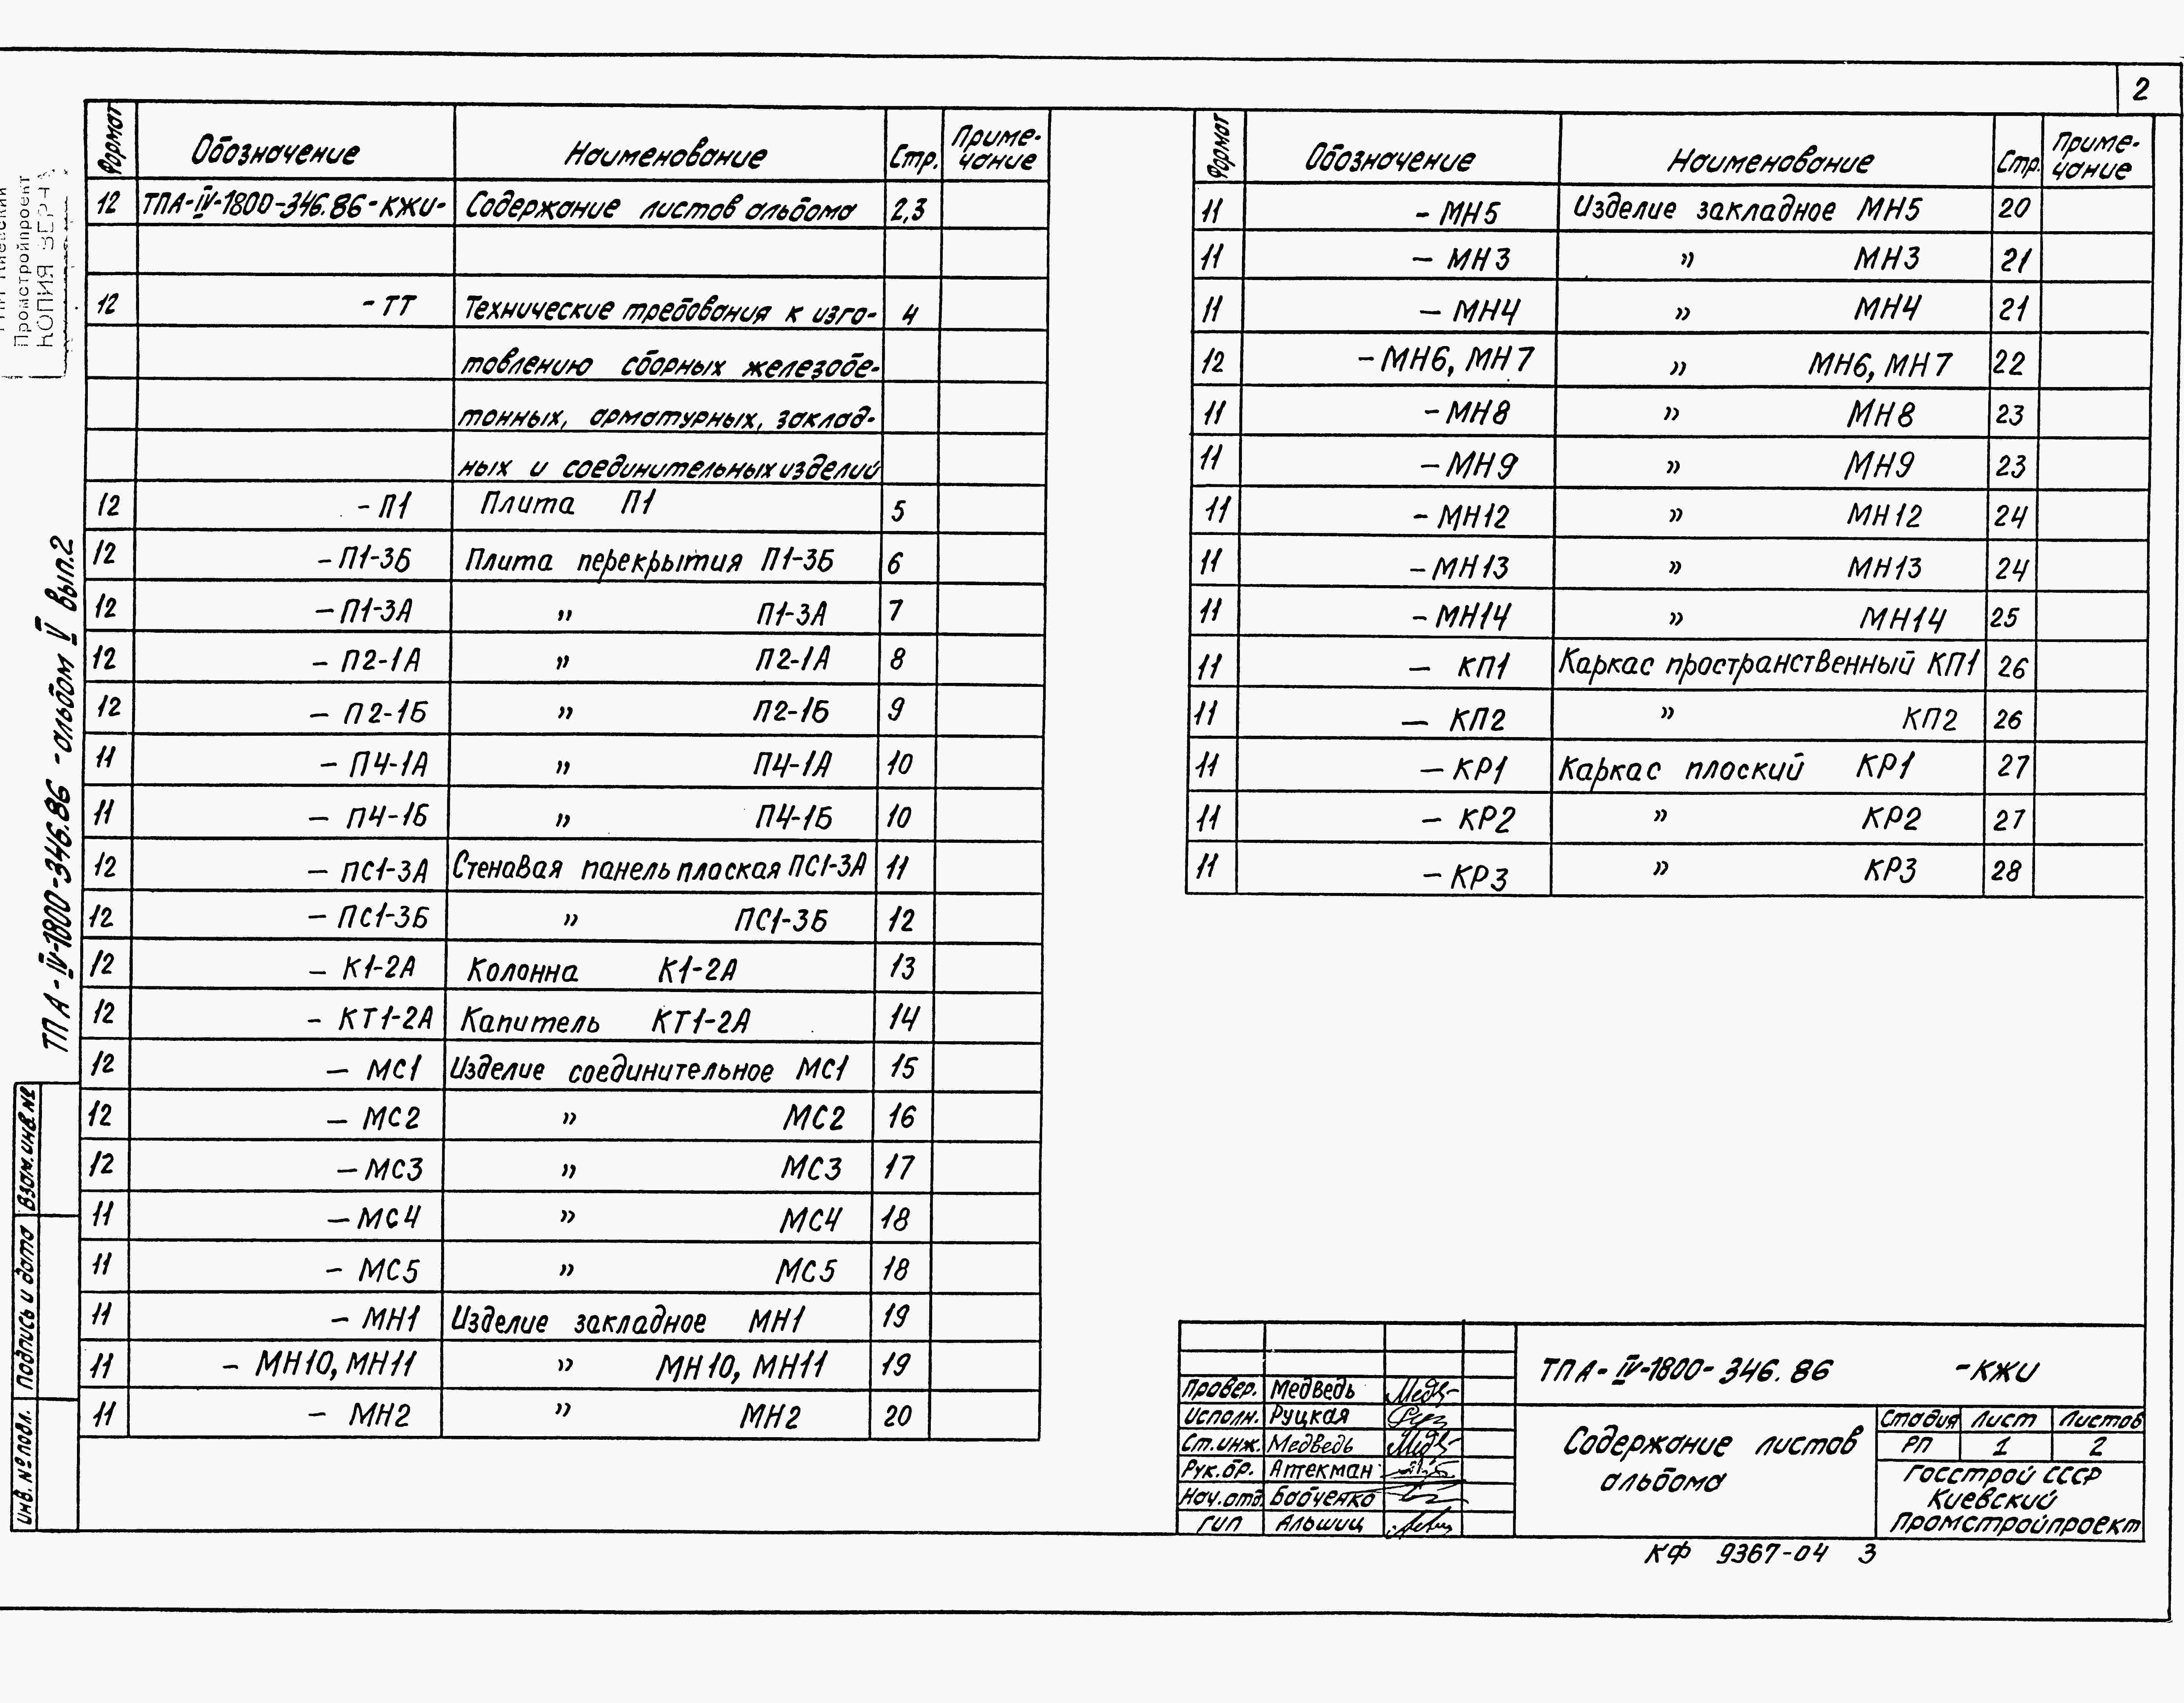 2
Формат Обозначение Наименование Стр. Приме-чание
12 ТПА-IV-1800-346.86-КЖИ- Содержание листов альбома 2,3
12 -ТТ Технические требования к изго- 4
товлению сборных железобе-
тонных, арматурных, заклад-
ных и соединительных изделий
12 -П1 Плита П1 5
12 -П1-3Б Плита перекрытия П1-3Б 6
12 -П1-3А " П1-3А 7
12 - П2-1А " П2-1А 8
12 - П2-1Б " П2-1Б 9
11 - П4-1А " П4-1А 10
11 - П4-1Б " П4-1Б 10
12 - ПС1-3А Стеновая панель плоская ПС1-3А 11
12 - ПС1-3Б " ПС1-3Б 12
12 - К1-2А Колонна К1-2А 13
12 - КТ1-2А Капитель КТ1-2А 14
12 - МС1 Изделие соединительное МС1 15
12 - МС2 " МС2 16
12 -МС3 " МС3 17
11 -МС4 " МС4 18
11 - МС5 " МС5 18
11 - МН1 Изделие закладное МН1 19
11 - МН10, МН11 " МН10, МН11 19
11 - МН2 " МН2 20
Формат Обозначение Наименование Стр. Приме-чание
11 -МН5 Изделие закладное МН5 20
11 - МН3 " МН3 21
11 - МН4 " МН4 21
12 -МН6, МН7 " МН6, МН7 22
11 -МН8 " МН8 23
11 -МН9 " МН9 23
11 -МН12 " МН12 24
11 -МН13 " МН13 24
11 -МН14 " МН14 25
11 - КП1 Каркас пространственный КП1 26
11 - КП2 " КП2 26
11 -КР1 Каркас плоский КР1 27
11 - КР2 " КР2 27
11 -КР3 " КР3 28
Промстройпроект
КОПИЯ ВЕРНА
ТПА-IV-1800-346.86 -альбом V вып.2
Взам.инв.№
Подпись и дата
Инв. № подл.
ТПА-IV-1800-346.86 -КЖИ
Провер. Медведь
Исполн. Руцкая
Ст.инж. Медведь
Рук.бр. Аптекман
Нач.отд. Бабченко
ГИП Альшиц
Содержание листов
альбома
Стадия Лист Листов
РП 1 2
Госстрой СССР
Киевский
Промстройпроект
КФ 9367-04 3